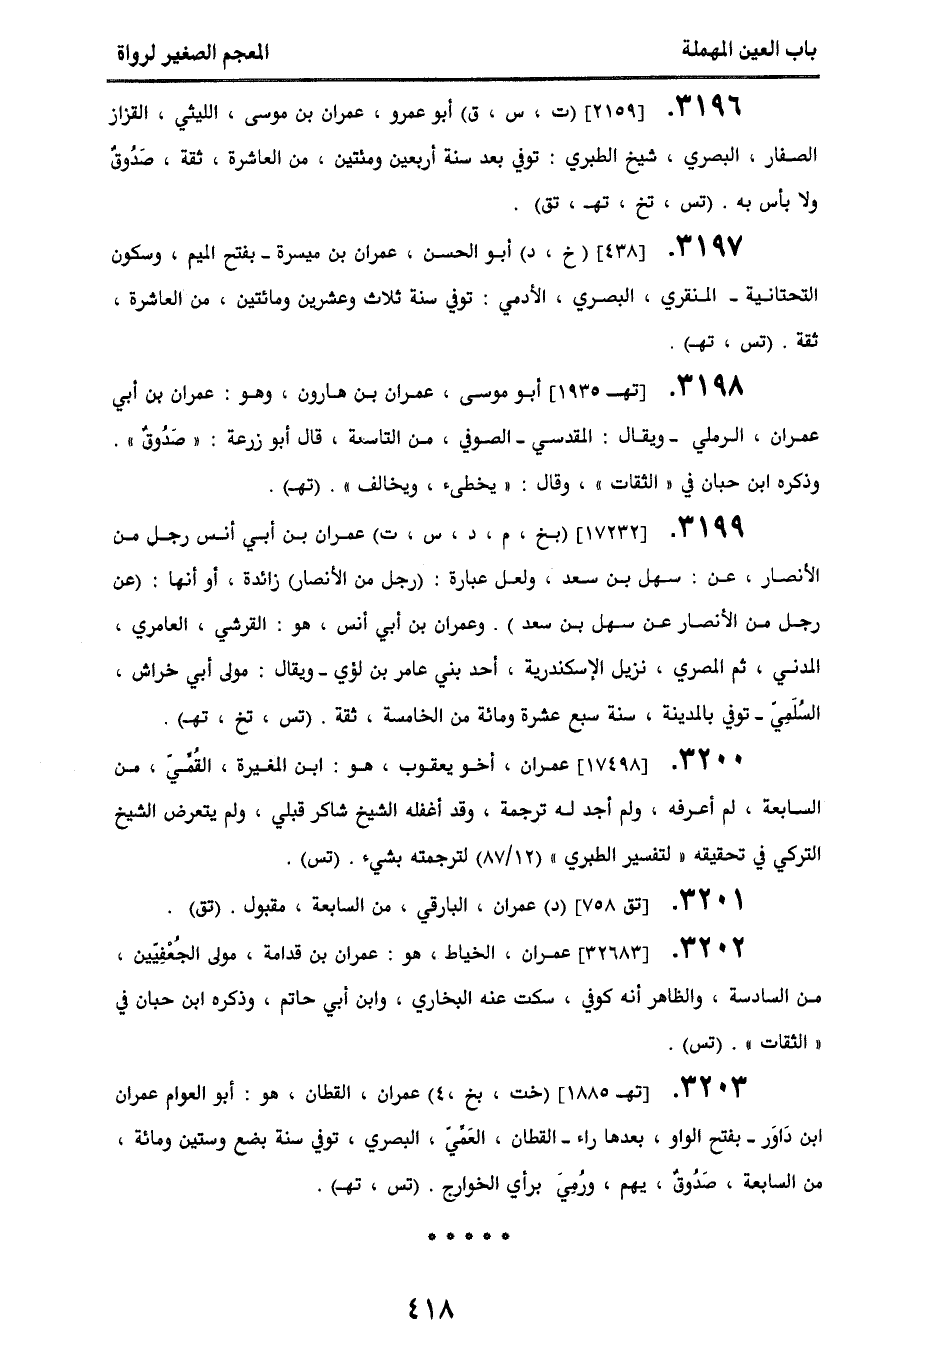 باب العين المهملة
المعجم الصغير لرواة
٣١٩٦. [٢١٥٩] (ت ، س ، ق) أبو عمرو ، عمران بن موسى ، الليثي ، القزاز
الصفار ، البصري ، شيخ الطبري : توفي بعد سنة أربعين ومئتين ، من العاشرة ، ثقة ، صَدُوقٌ
ولا بأس به . (تس ، تخ ، تهـ ، تق) .
٣١٩٧. [٤٣٨] ( خ ، د) أبو الحسن ، عمران بن ميسرة ـ بفتح الميم ، وسكون
التحتانية ـ المنقري ، البصري ، الأدمي : توفي سنة ثلاث وعشرين ومائتين ، من العاشرة ،
ثقة . (تس ، تهـ) .
٣١٩٨. [تهـ ١٩٣٥] أبو موسى ، عمران بن هارون ، وهو : عمران بن أبي
عمران ، الرملي ـ ويقال : المقدسي ـ الصوفي ، من التاسعة ، قال أبو زرعة : « صَدُوقٌ » .
وذكره ابن حبان في « الثقات » ، وقال : « يخطىء ، ويخالف » . (تهـ) .
٣١٩٩. [١٧٢٣٢] (بخ ، م ، د ، س ، ت) عمران بن أبي أنس رجل من
الأنصار ، عن : سهل بن سعد ، ولعل عبارة : (رجل من الأنصار) زائدة ، أو أنها : (عن
رجل من الأنصار عن سهل بن سعد ) . وعمران بن أبي أنس ، هو : القرشي ، العامري ،
المدني ، ثم المصري ، نزيل الإسكندرية ، أحد بني عامر بن لؤي ـ ويقال : مولى أبي خراش ،
السُّلَمِيّ ـ توفي بالمدينة ، سنة سبع عشرة ومائة من الخامسة ، ثقة . (تس ، تخ ، تهـ) .
٣٢٠٠. [١٧٤٩٨] عمران ، أخو يعقوب ، هو : ابن المغيرة ، القُمِّيّ ، من
السابعة ، لم أعرفه ، ولم أجد له ترجمة ، وقد أغفله الشيخ شاكر قبلي ، ولم يتعرض الشيخ
التركي في تحقيقه « لتفسير الطبري » (٨٧/١٢) لترجمته بشيء . (تس) .
٣٢٠١. [تق ٧٥٨] (د) عمران ، البارقي ، من السابعة ، مقبول . (تق) .
٣٢٠٢. [٣٢٦٨٣] عمران ، الخياط ، هو : عمران بن قدامة ، مولى الجُعْفِيِّين ،
من السادسة ، والظاهر أنه كوفي ، سكت عنه البخاري ، وابن أبي حاتم ، وذكره ابن حبان في
« الثقات » . (تس) .
٣٢٠٣. [تهـ ١٨٨٥] (خت ، بخ ،٤) عمران ، القطان ، هو : أبو العوام عمران
ابن دَاوَر ـ بفتح الواو ، بعدها راء ـ القطان ، العَمِّيّ ، البصري ، توفي سنة بضع وستين ومائة ،
من السابعة ، صَدُوقٌ ، يهم ، ورُمِيَ برأي الخوارج . (تس ، تهـ) .
* * * * *
٤١٨